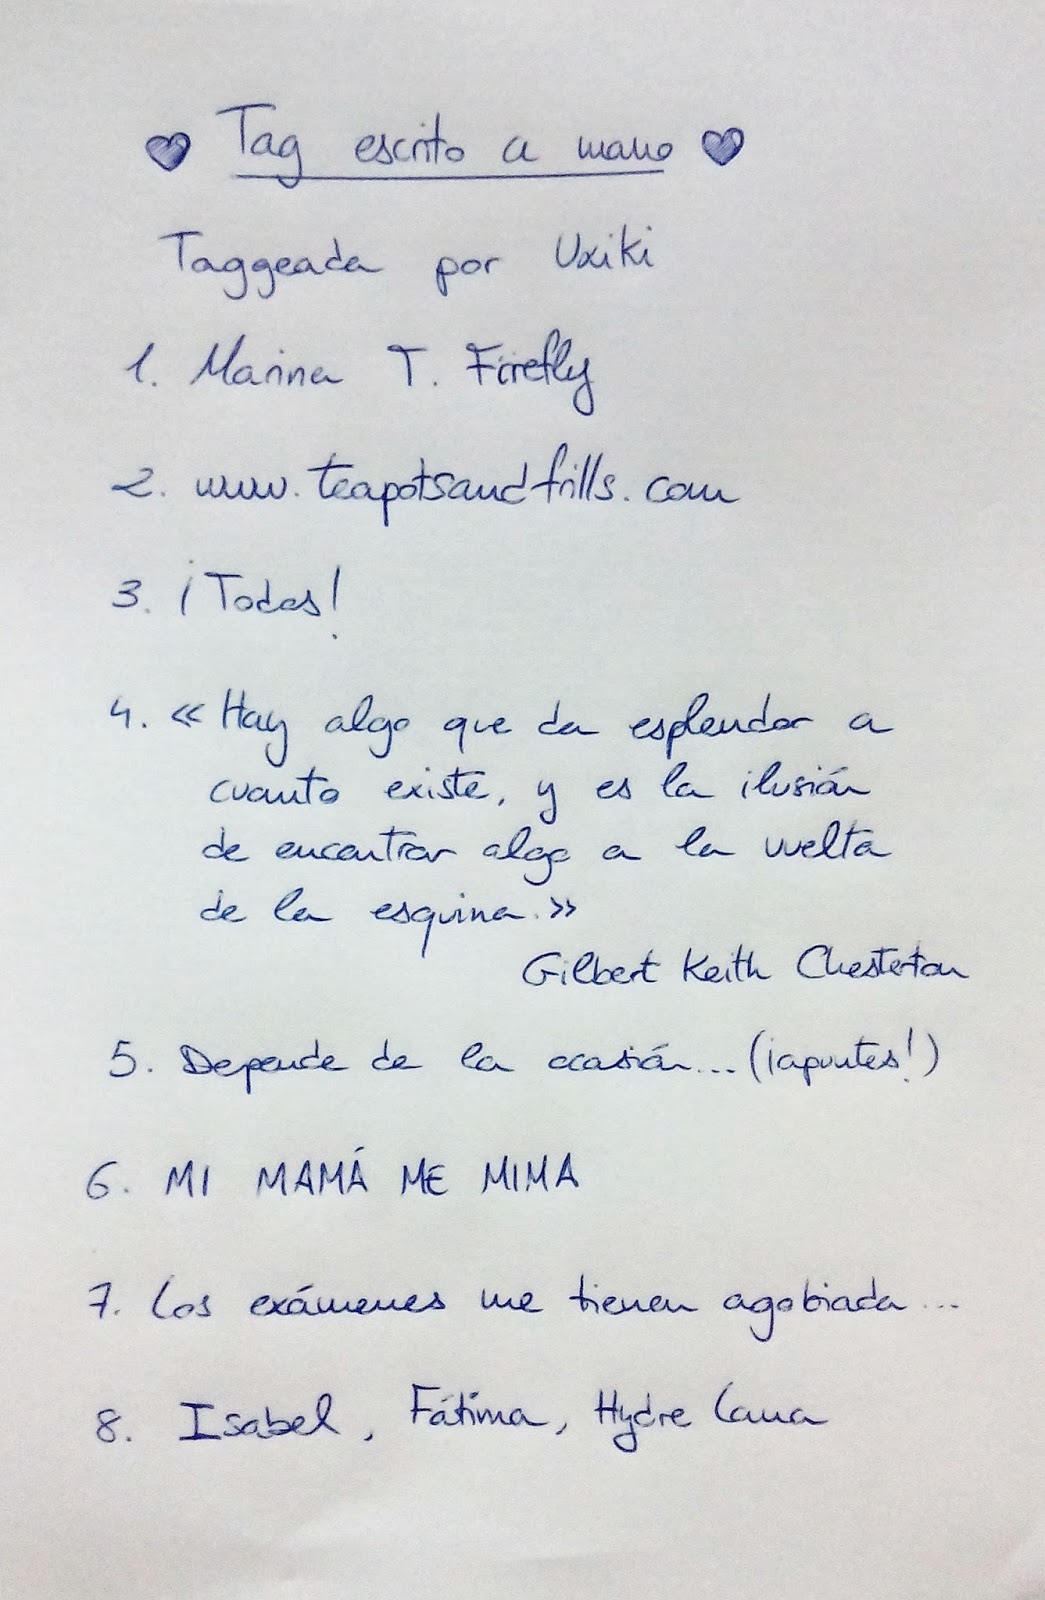 Tag escrito a mano
Taggeada por Uxiki
1. Marina T. Firefly
2. www.teapotsandfrills.com
3. ¡Todas!
4. «Hay algo que da esplendor a
cuanto existe, y es la ilusión
de encontrar algo a la vuelta
de la esquina.»
Gilbert Keith Chesterton
5. Depende de la ocasión... (¡apuntes!)
6. MI MAMÁ ME MIMA
7. Los exámenes me tienen agobiada...
8. Isabel, Fátima, Hydre Lana